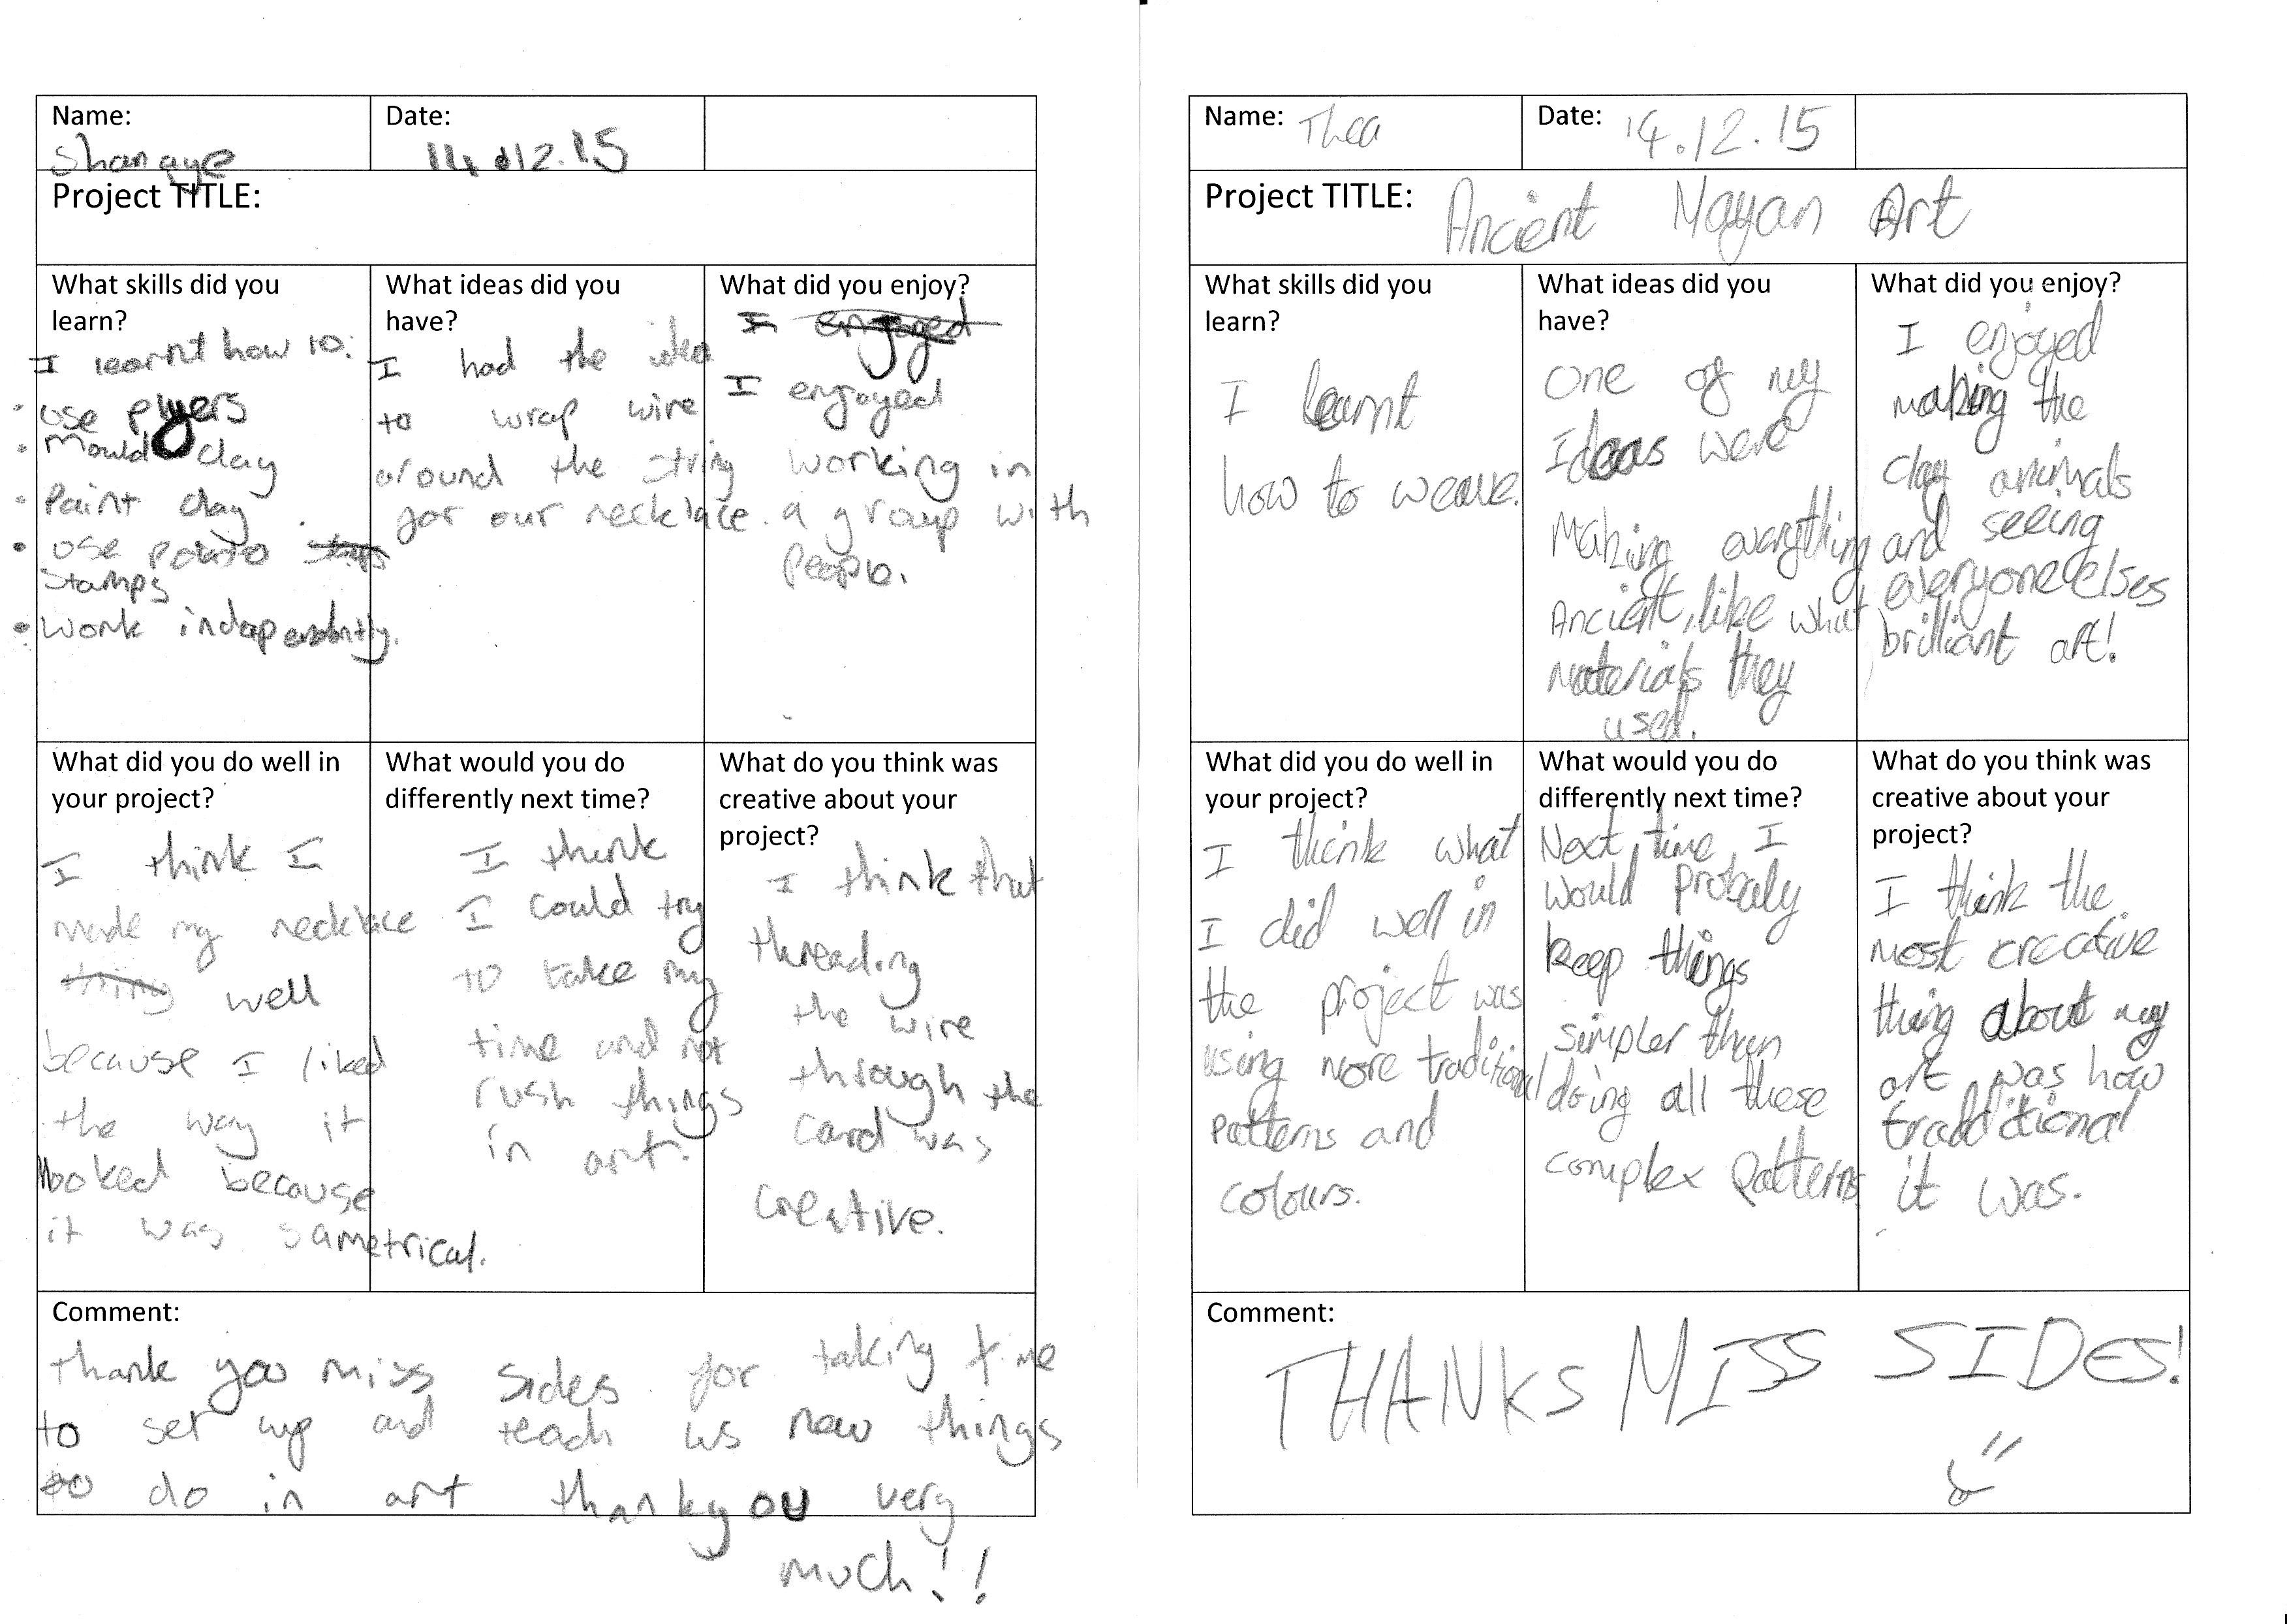 Name:
Shanaye
Date:
14.12.15
Project TITLE:
What skills did you
learn?
I learnt how to:
• use plyers
• Mould clay
• Paint clay
• use potato
stamps
• work independantly.
What ideas did you
have?
I had the idea
to wrap wire
around the string
for our necklace.
What did you enjoy?
I enjoyed
I enjoyed
working in
a group with
people.
What did you do well in
your project?
I think I
made my necklace
thing well
because I liked
the way it
looked because
it was sametrical.
What would you do
differently next time?
I think
I could try
to take my
time and not
rush things
in art.
What do you think was
creative about your
project?
I think that
threading
the wire
through the
card was
creative.
Comment:
thank you miss Sides for taking time
to set up and teach us new things
to do in art thankyou very
much!!
Name: Thea
Date: 14.12.15
Project TITLE: Ancient Mayan Art
What skills did you
learn?
I learnt
how to weave.
What ideas did you
have?
One of my
Ideas were
Making everything
Ancient, like what
materials they
used.
What did you enjoy?
I enjoyed
making the
clay animals
and seeing
everyone elses
brilliant art!
What did you do well in
your project?
I think what
I did well in
the project was
using more traditional
patterns and
colours.
What would you do
differently next time?
Next time I
would probaly
keep things
simpler than
doing all these
complex patterns
What do you think was
creative about your
project?
I think the
most creative
thing about my
art was how
tradditional
it was.
Comment:
THANKS MISS SIDES!